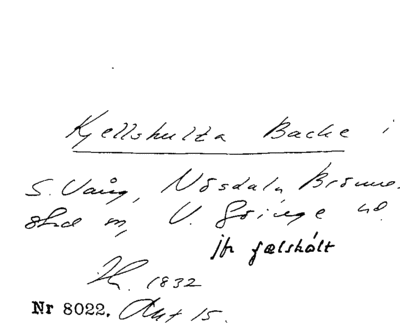 Kjellshulta Backe i
S. Vång, Nösdala, Brönne-
stad m, V. Göinge hd.
jfr fælshólt
1832
Nr 8022. Akt 15.